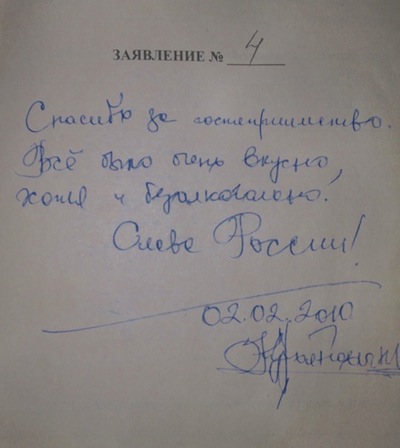 ЗАЯВЛЕНИЕ № 4
Спасибо за гостеприимство.
Всё было очень вкусно,
хотя и безалкогольно!
Слава России!
02.02.2010